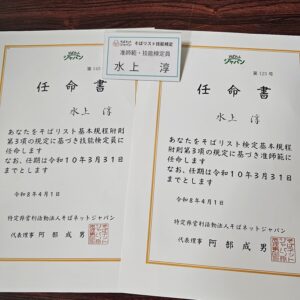 そばネット
ジャパン
そばリスト技能検定
准師範・技能検定員
水上 淳
ジャパン
任命書
水上 淳
あなたをそばリスト基本規程附則
第3項の規定に基づき技能検定員に
任命します
なお、任期は令和10年3月31日
までとします
令和8年4月1日
特定非営利活動法人そばネットジャパン
代表理事 阿部成男
ジャパン
第 123 号
任命書
水上 淳
あなたをそばリスト検定基本規程
附則第3項の規定に基づき准師範に
任命します
なお、任期は令和10年3月31日
までとします
令和8年4月1日
特定非営利活動法人そばネットジャパン
代表理事 阿部成男